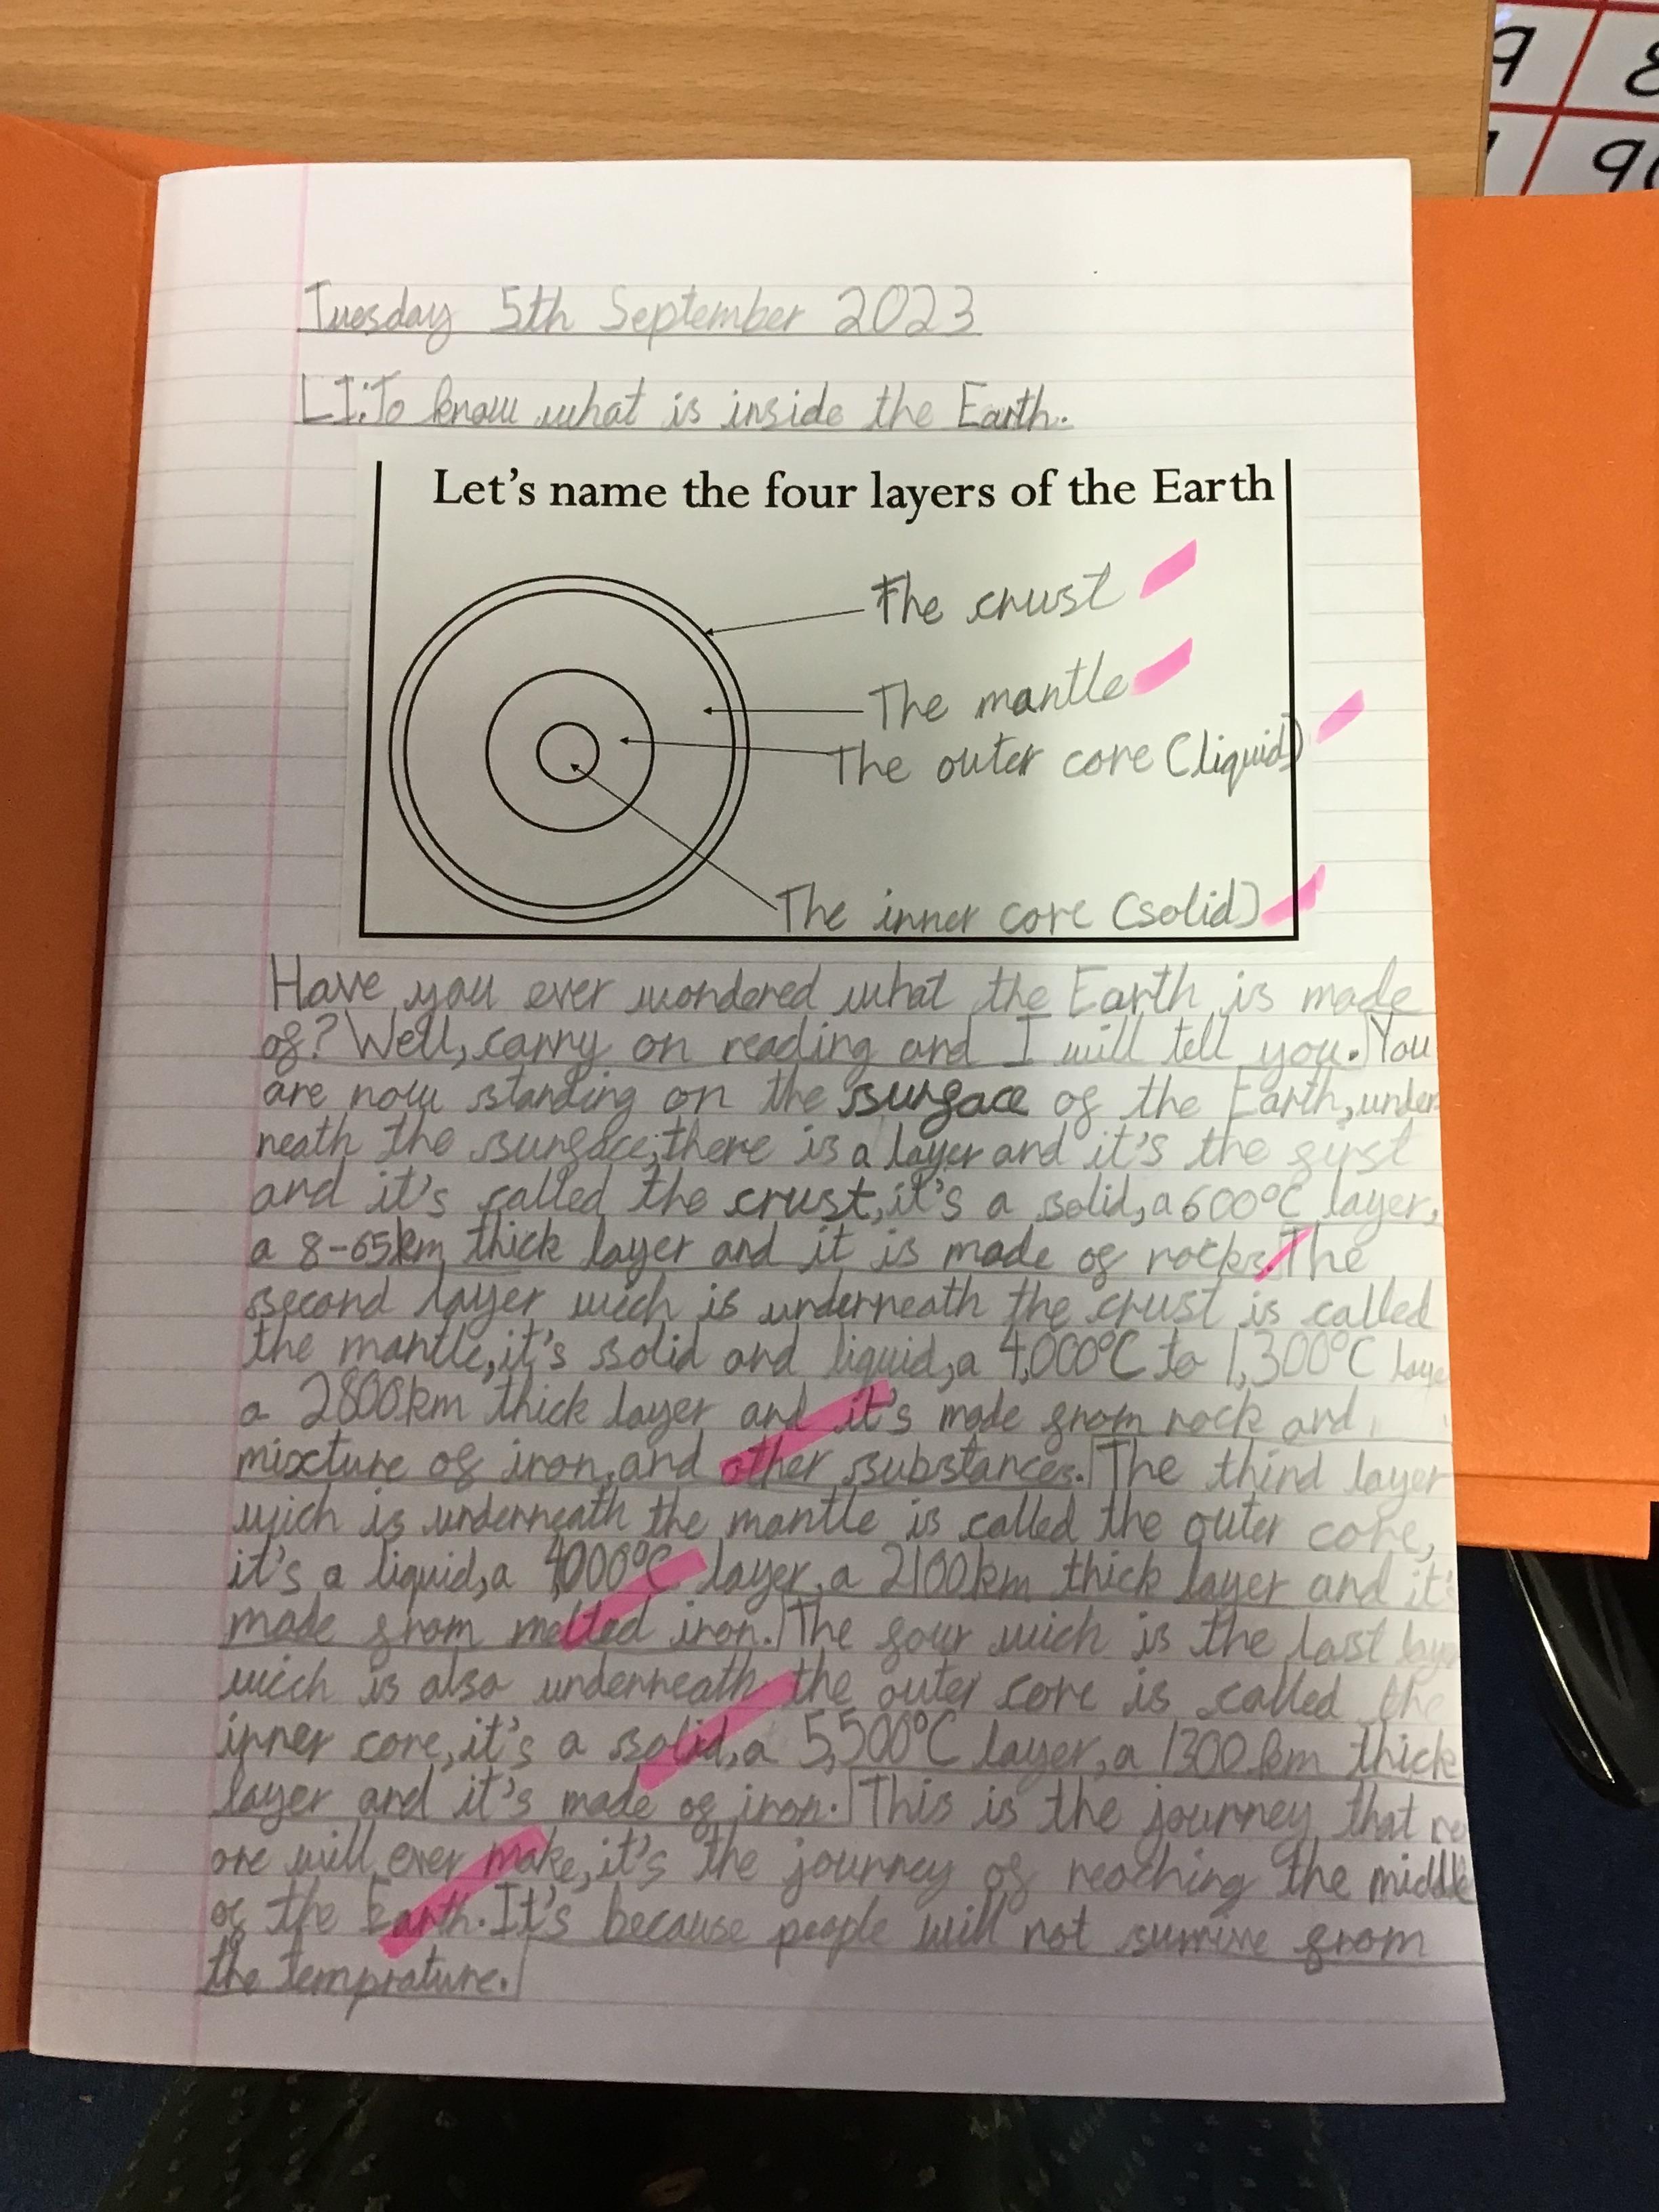 9 8
9
Tuesday 5th September 2023
LI:To know what is inside the Earth.
Let's name the four layers of the Earth
The crust
The mantle
The outer core (liquid)
The inner core (solid)
Have you ever wondered what the Earth is made
of? Well, carry on reading and I will tell you. You
are now standing on the surface of the Earth, under
neath the surface, there is a layer and it's the first
and it's called the crust, it's a solid, a 600°C layer,
a 8-65km thick layer and it is made of rocks. The
second layer wich is underneath the crust is called
the mantle, it's solid and liquid, a 4,000°C to 1,300°C laye
a 2800km thick layer and it's made from rock and
mixture of iron, and other substances. The third layer
wich is underneath the mantle is called the outer core,
it's a liquid, a 4000°C layer, a 2100km thick layer and it's
made from melted iron. The four wich is the last laye
wich is also underneath the outer core is called the
inner core, it's a solid, a 5,500°C layer, a 1300km thick
layer and it's made of iron. This is the journey that no
one will ever make, it's the journey of reaching the middle
of the Earth. It's because people will not survive from
the temprature.